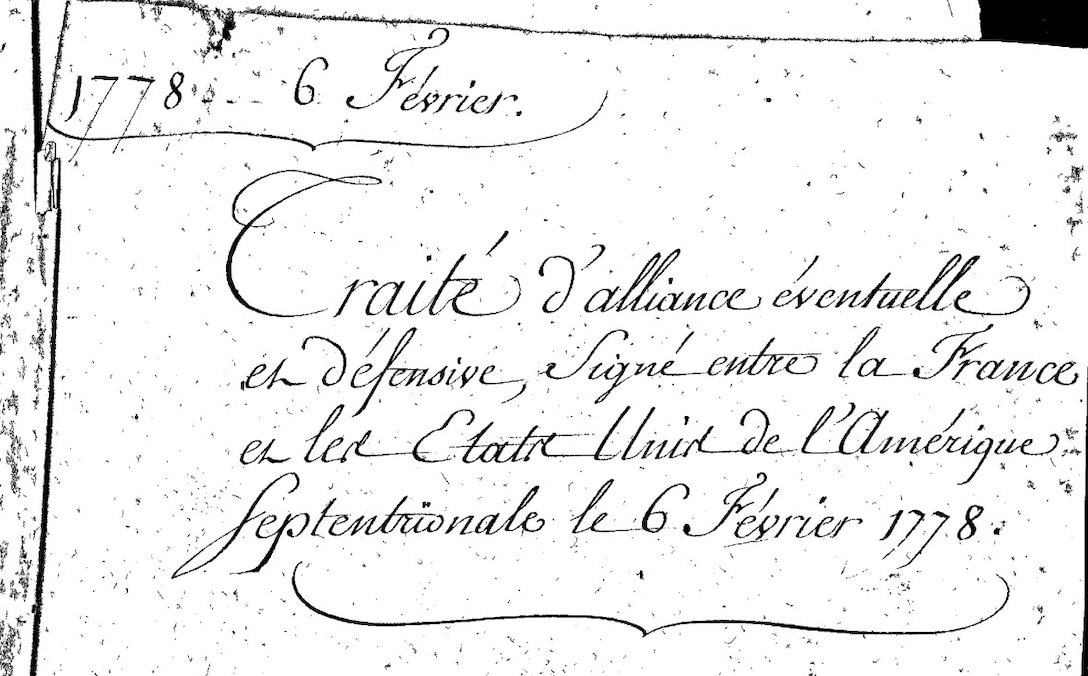 1778 - - - 6 Février.
Traité d'alliance éventuelle
et défensive, Signé entre la France
et les Etats Unis de l'Amérique
Septentrionale le 6 Février 1778.